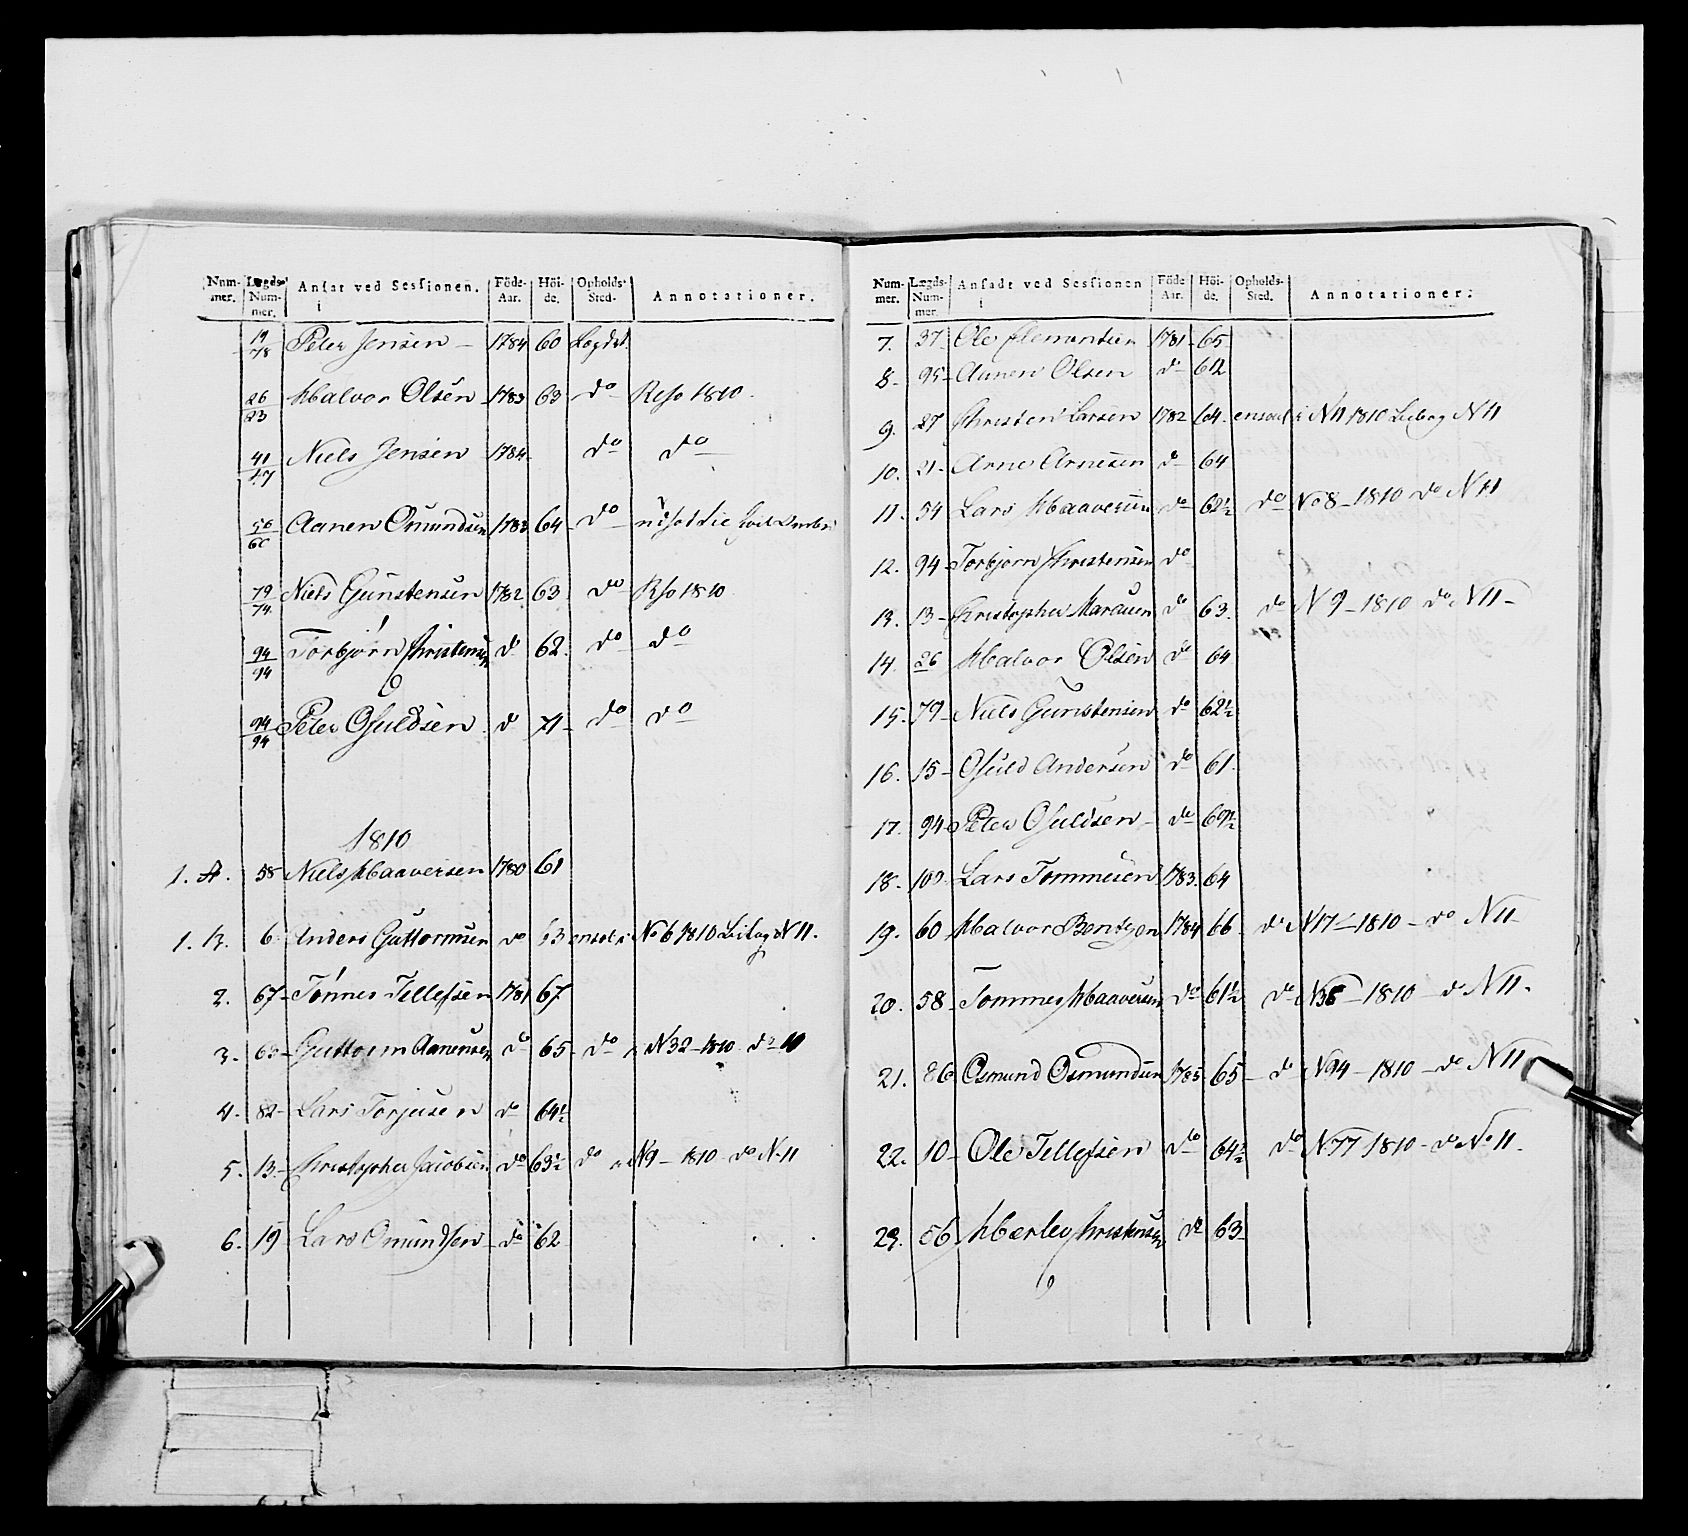 Num-mer. Lægds-Num-mer. Ansat ved Sessionen. Föde-Aar. Höi-de. Opholds-Sted. Annotationer.
19/78 Peter Jensen 1784 60 Lægdet
26/23 Halvor Olsen 1783 63 do Reso 1810.
41/47 Niels Jensen 1784 do do
50/60 Aanen Omundsen 1783 64 do
79/74 Niels Gunstensen 1782 63 do Rso 1810
94/94 Torbjørn Christensen do 62 do do
94/94 Peter Osuldsen do 71 do do
1810
1. A. 58 Niels Haaversen 1780 61
1. B. 6 Anders Guttormsen do 63 No 6 1810 Bilag N 11.
2. 67 Tønnes Tellefsen 1781 67
3. 63 Guttorm Aanensen do 65 do N 32 - 1810 do 11
4. 82 Lars Torjusen do 64½
5. 13 Christopher Jacobsen do 63½ do N 9 - 1810 do N 11
6. 19 Lars Omundsen do 62
Num-mer. Lægds-Num-mer. Ansadt ved Sessionen Föde Aar. Höi-de. Opholds-Sted. Annotationer:
7. 37 Ole Clementsen 1781 65
8. 95 Aanen Olsen do 612
9. 27 Christen Larsen 1782 64 i N 11 1810 Bilag N 11
10. 21 Arne Arnesen do 64
11. 54 Lars Haaversen do 62½ do No 8 - 1810 do N 11
12. 94 Torbjørn Christensen do
13. 13 Christopher do 63. do N 9 - 1810 do N 11
14. 26 Halvor Olsen do 64
15. 79 Niels Gunstensen do 62½
16. 15 Osuld Andersen do 61
17. 94 Peter Osuldsen do 69½
18. 100 Lars Tommesen 1783 64
19. 60 Halvor Bentsen 1784 66 do N 17 - 1810 - do N 11
20. 58 Tommes Haaversen do 61½ do - 1810 - do N 11.
21. 86 Osmund Osmundsen 1785 65 do N 94 - 1810 - do N 11
22. 10 Ole Tellefsen do 64½ do N 77 1810 - do No 11.
23. 56 Christensen do 63